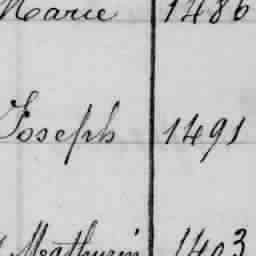 Marie 1486
Joseph 1491
Mathurin 1403